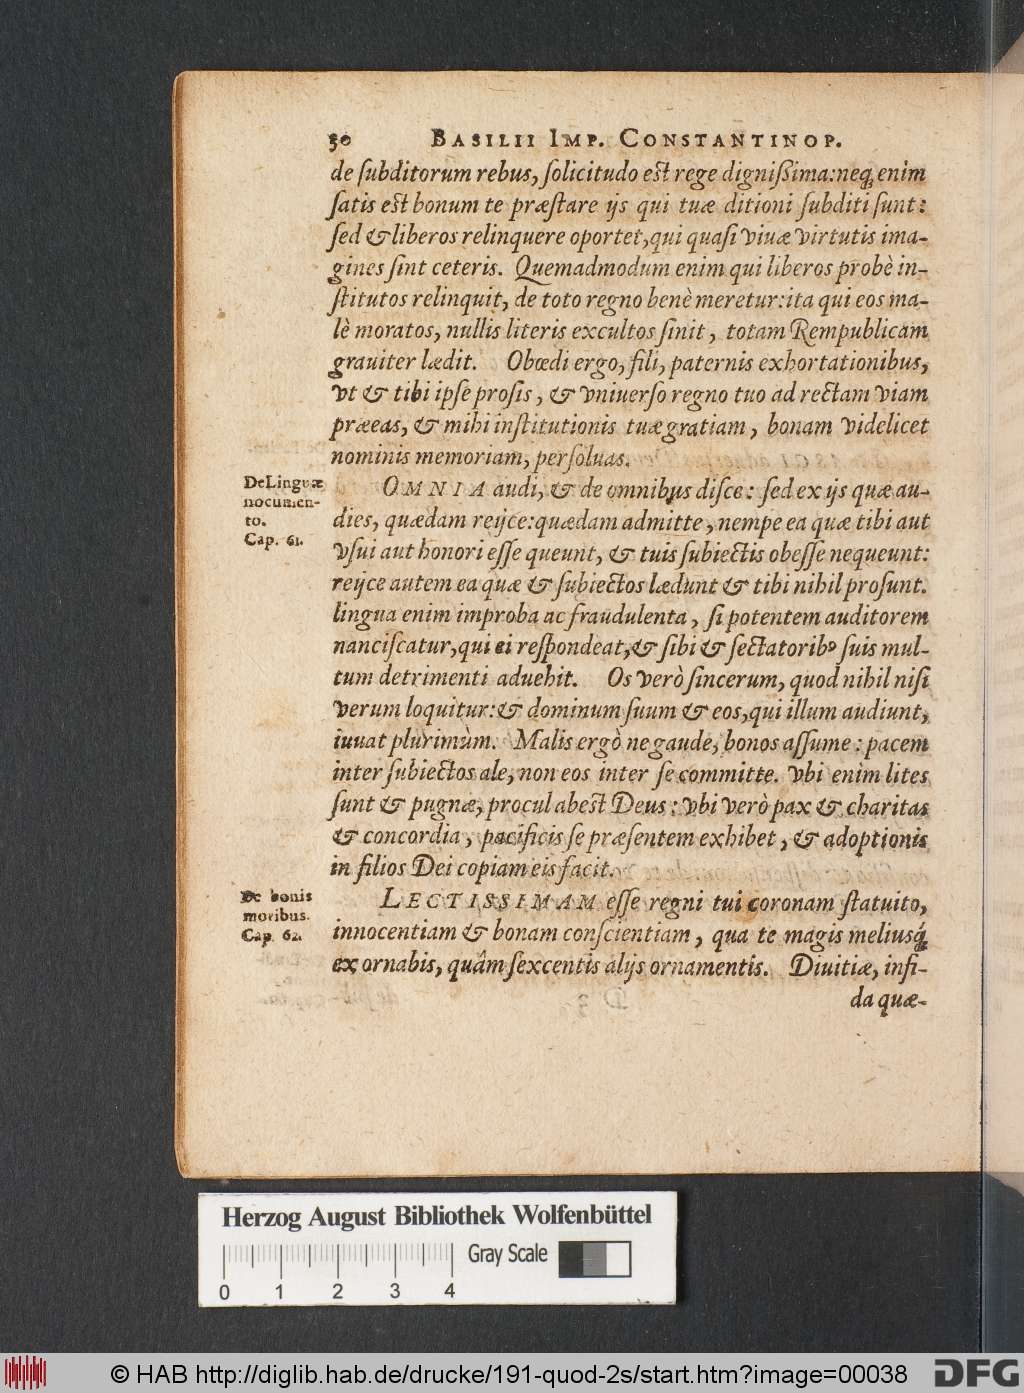 30 BASILII IMP. CONSTANTINOP.
de ſubditorum rebus, ſolicitudo eſt rege digniſſima: neq; enim
ſatis eſt bonum te præſtare ijs qui tuæ ditioni ſubditi ſunt:
ſed & liberos relinquere oportet, qui quaſi viuæ virtutis ima-
gines ſint ceteris. Quemadmodum enim qui liberos probè in-
ſtitutos relinquit, de toto regno benè meretur: ita qui eos ma-
lè moratos, nullis literis excultos ſinit, totam Rempublicam
grauiter lædit. Obœdi ergo, fili, paternis exhortationibus,
vt & tibi ipſe proſis, & vniuerſo regno tuo ad rectam viam
præeas, & mihi inſtitutionis tuæ gratiam, bonam videlicet
nominis memoriam, perſoluas.
De Linguæ
nocumen-
to.
Cap. 61.
OMNIA audi, & de omnibus diſce: ſed ex ijs quæ au-
dies, quædam reijce: quædam admitte, nempe ea quæ tibi aut
vſui aut honori eſſe queunt, & tuis ſubiectis obeſſe nequeunt:
reijce autem ea quæ & ſubiectos lædunt & tibi nihil proſunt.
lingua enim improba ac fraudulenta, ſi potentem auditorem
nanciſcatur, qui ei reſpondeat, & ſibi & ſectatoribꝰ ſuis mul-
tum detrimenti aduehit. Os verò ſincerum, quod nihil niſi
verum loquitur: & dominum ſuum & eos, qui illum audiunt,
iuuat plurimùm. Malis ergò ne gaude, bonos aſſume: pacem
inter ſubiectos ale, non eos inter ſe committe. vbi enim lites
ſunt & pugnæ, procul abeſt Deus: vbi verò pax & charitas
& concordia, pacificis ſe præſentem exhibet, & adoptionis
in filios Dei copiam eis facit.
De bonis
moribus.
Cap. 62.
LECTISSIMAM eſſe regni tui coronam ſtatuito,
innocentiam & bonam conſcientiam, qua te magis meliusq́;
ex ornabis, quâm ſexcentis alijs ornamentis. Diuitiæ, infi-
da quæ-
Herzog August Bibliothek Wolfenbüttel
Gray Scale
0 1 2 3 4
© HAB http://diglib.hab.de/drucke/191-quod-2s/start.htm?image=00038
DFG